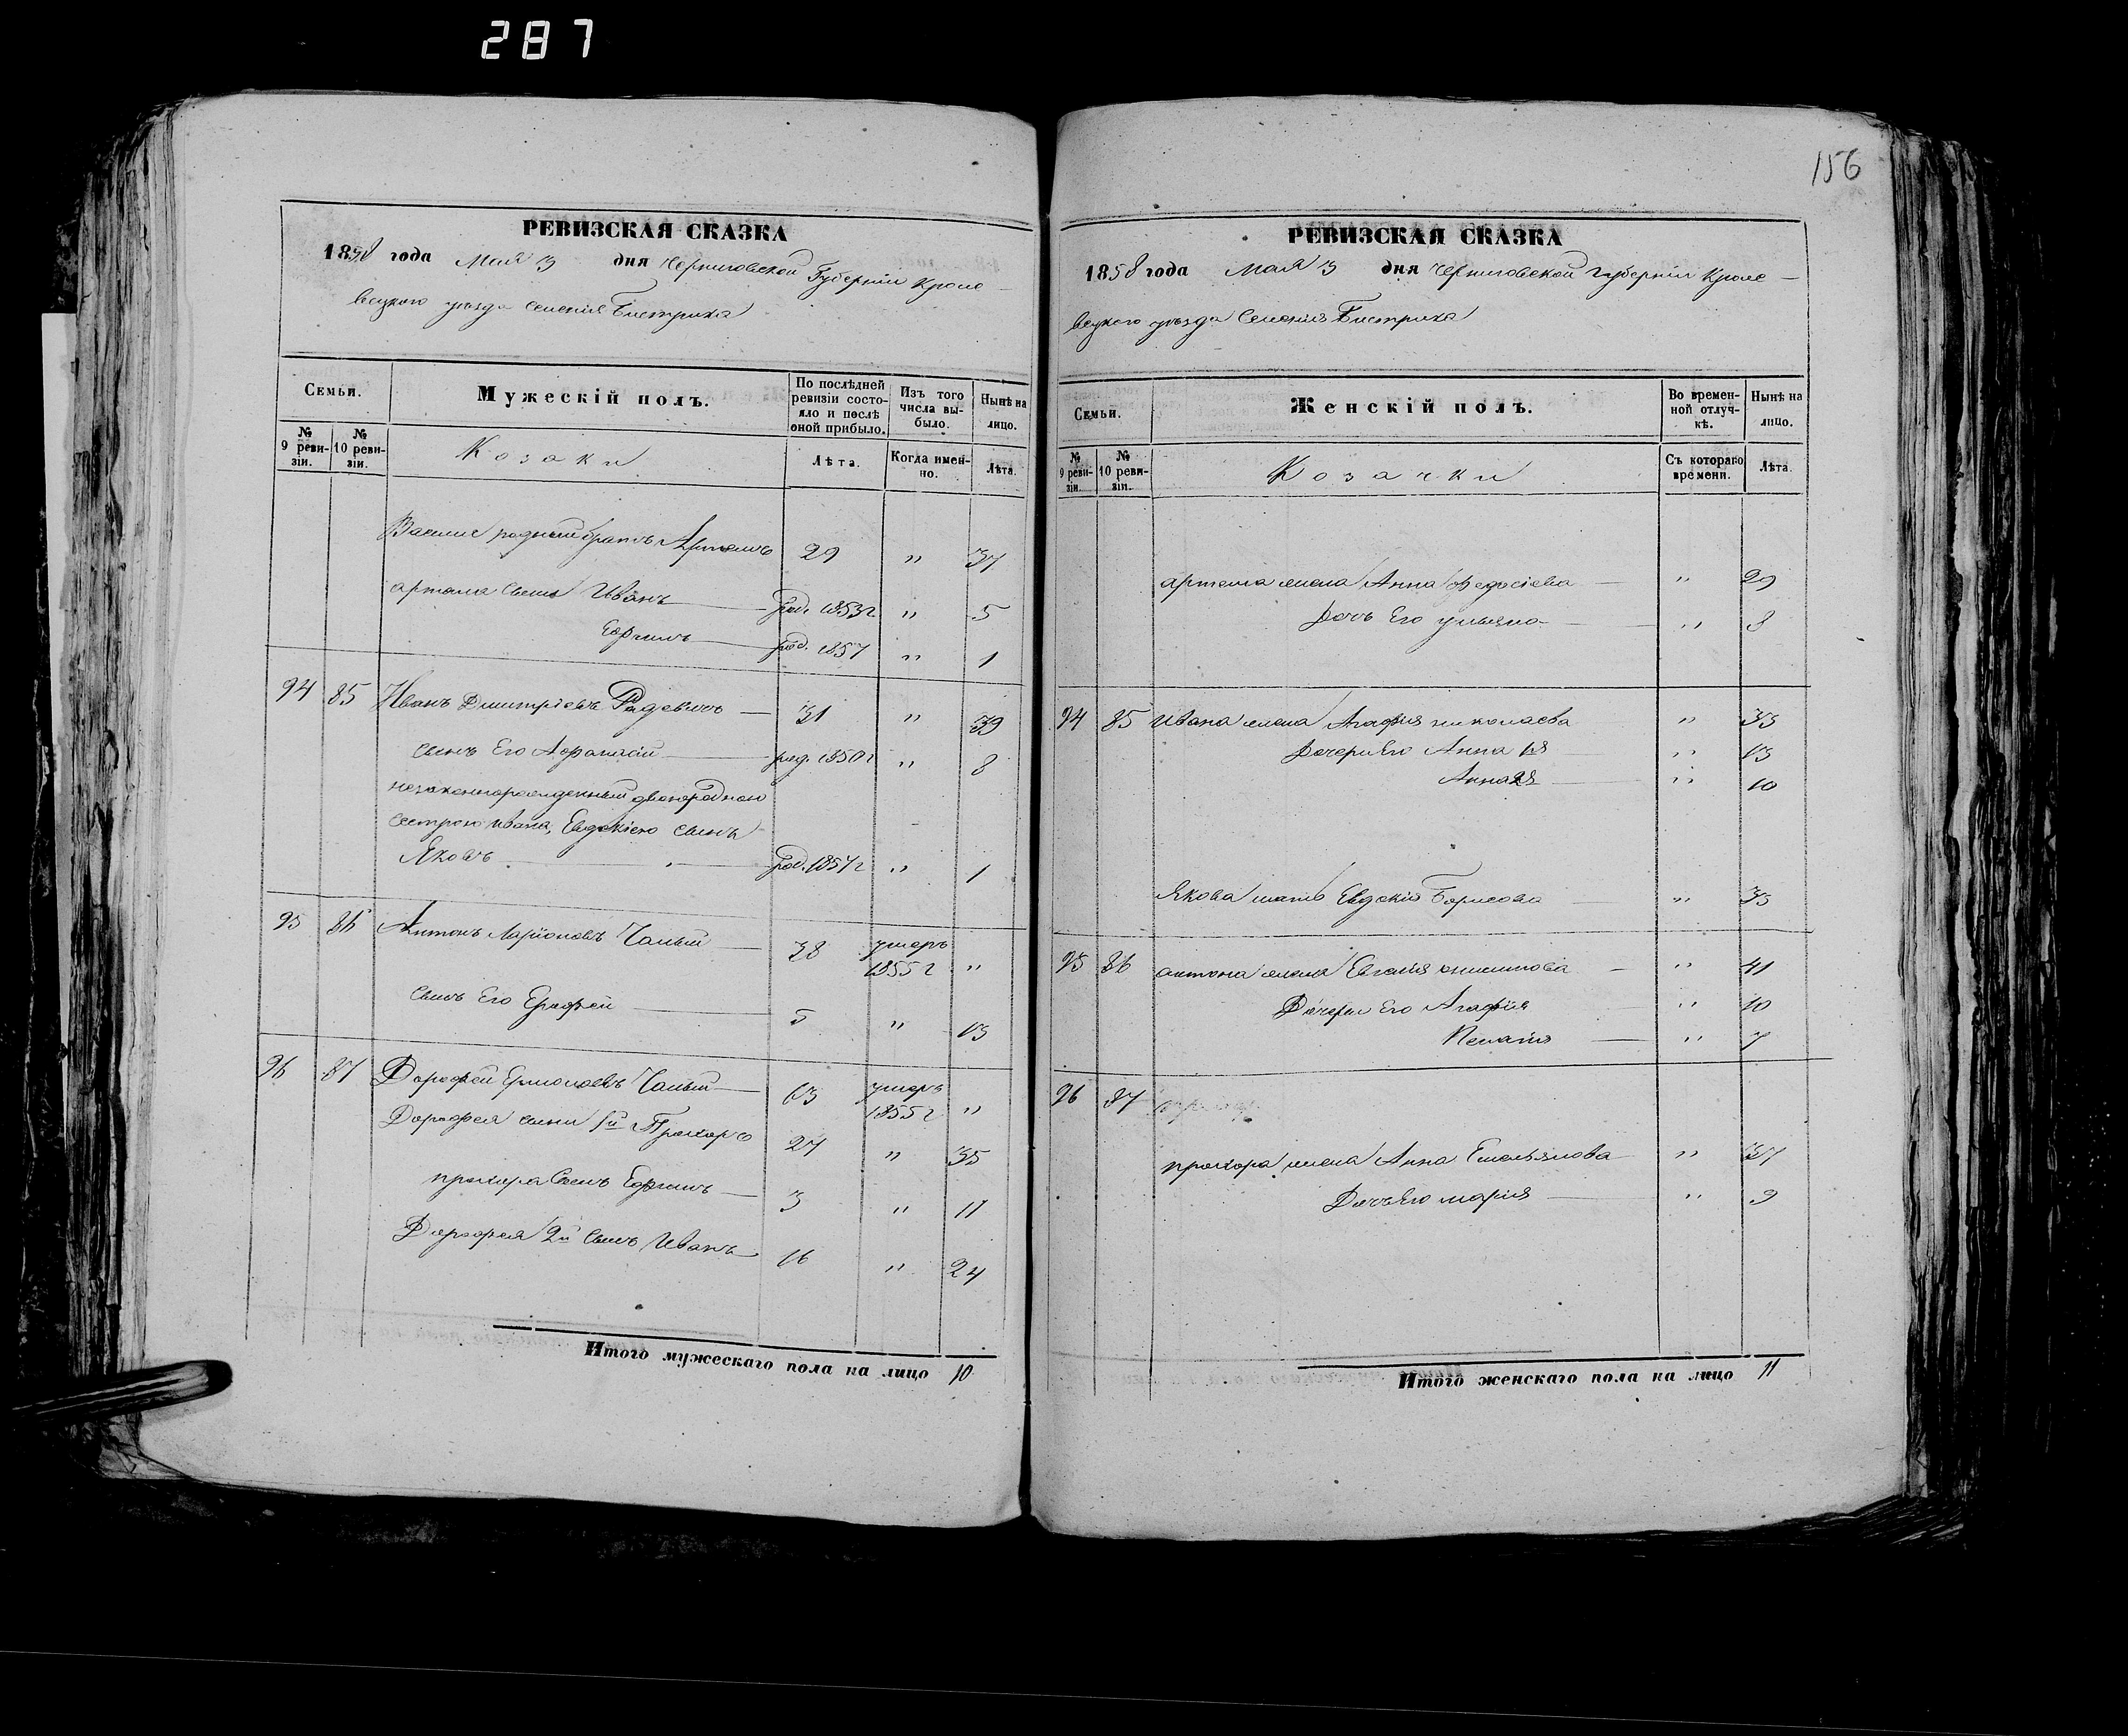 287
РЕВИЗСКАЯ СКАЗКА
1858 года Мая 3 дня Черниговской Губерніи Кроле-
вецкого уезда Селенія Бистрика
Семьи.
Мужескій полъ.
По послѣдней ревизіи состояло и послѣ оной прибыло.
Изъ того числа выбыло.
Нынѣ на лицо.
№ 9 ревизіи.
№ 10 ревизіи.
Козаки
Лѣта.
Когда именно.
Лѣта.
родный братъ Артемъ 29 " 37
артема сынъ Иванъ род. 1853 г " 5
Ефимъ род. 1857 " 1
94 85 Иванъ Дмитріевъ Радевичъ 31 " 39
сынъ Его Афанасій род. 1850 г " 8
незаконнорожденный двоюродною
сестрою Ивана, Евдокіею сынъ
Яковъ род. 1857 г " 1
95 86 Антонъ Ларіоновъ Чалый 38 умеръ
1855 г "
сынъ Его Ерофей 5 " 13
96 87 Дорофей Ермолаевъ Чалый 63 умеръ
1855 г "
Дорофея сыни 1й Прохоръ 27 " 35
прохора Сынъ Ефимъ 3 " 11
Дорофея 2й Сынъ Иванъ 16 " 24
Итого мужескаго пола на лицо 10
156
РЕВИЗСКАЯ СКАЗКА
1858 года Мая 3 дня Черниговской Губерніи Кроле-
вецкого уезда Селенія Бистрика
Семьи.
Женскій полъ.
Во временной отлучкѣ.
Нынѣ на лицо.
№ 9 ревизіи.
№ 10 ревизіи.
Козачки
Съ котораго времени.
Лѣта.
артема жена Анна Федосіева " 29
Дочь Его ульяна " 8
94 85 Ивана жена Агафія николаева " 35
Дочери Его Анна 1я " 13
Анна 2я " 10
Якова мать Евдокія Борисова " 35
95 86 антона жена Евгенія " 41
Дочери Его Агафія " 10
" 7
96 87
прохора жена Анна Емельянова " 37
Дочь Его марія " 9
Итого женскаго пола на лицо 11